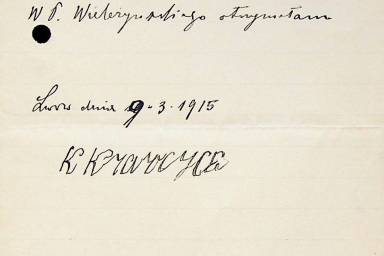 W P. Wieleżyńskiego otrzymałam
Lwów dnia 9.3.1915
K Krawczyk